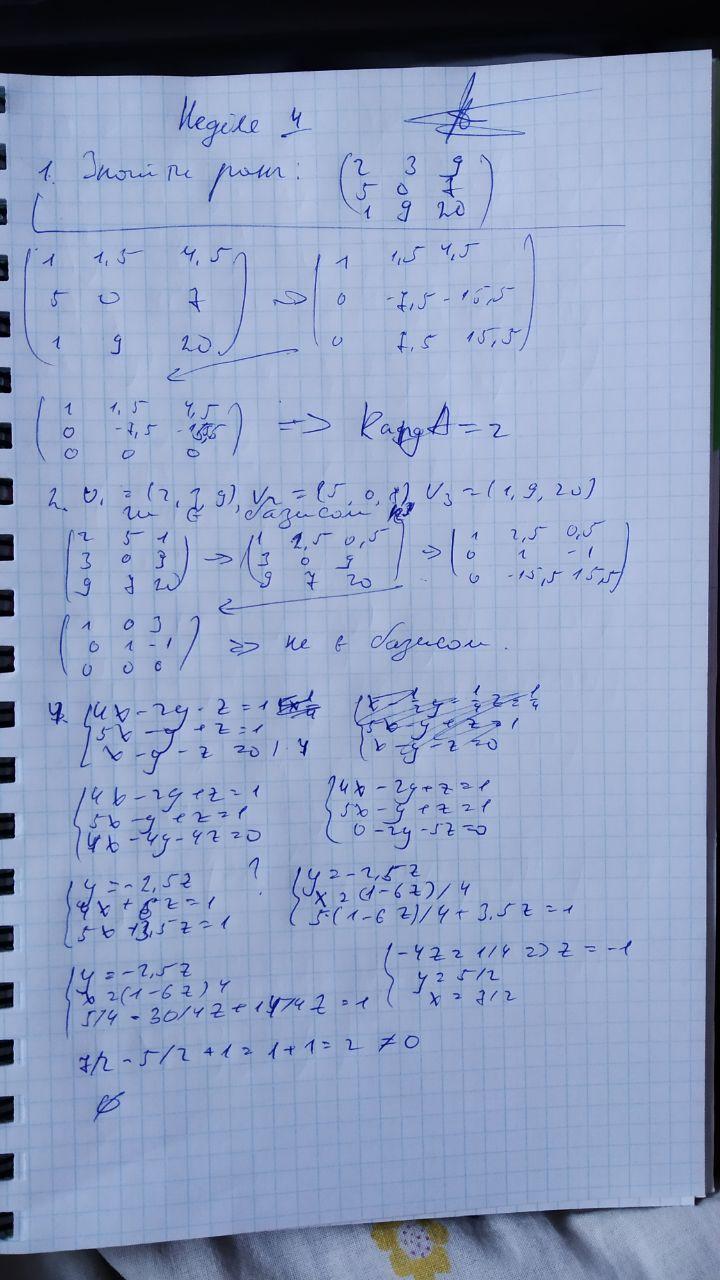 Неделя 4
1. Знайти ранг: (2 3 9
5 0 7
1 9 20)
(1 1,5 4,5
5 0 7
1 9 20) => (1 1,5 4,5
0 -7,5 -15,5
0 7,5 15,5)
(1 1,5 4,5
0 -7,5 -15,5
0 0 0) => Rang A = 2
2. V₁ = (2, 3, 9), V₂ = (5, 0, 7), V₃ = (1, 9, 20)
чи є базисом
(2 5 1
3 0 9
9 7 20) => (1 2,5 0,5
3 0 9
9 7 20) => (1 2,5 0,5
0 1 -1
0 -15,5 15,5)
(1 0 3
0 1 -1
0 0 0) => не є базисом.
{4x - 2y - z = 1
5x - y + z = 1
x - y - z = 0 | · 4
{4x - 2y + z = 1
5x - y + z = 1
4x - 4y - 4z = 0
{4x - 2y + z = 1
5x - y + z = 1
0 - 2y - 5z = 0
{y = -2,5z
4x + 6z = 1
5x + 3,5z = 1
?
{y = -2,5z
x = (1 - 6z)/4
5(1 - 6z)/4 + 3,5z = 1
{y = -2,5z
x = (1 - 6z)4
5/4 - 30/4z + 14/4z = 1
{-4z = 1/4 => z = -1
y = 5/2
x = 7/2
7/2 - 5/2 + 1 = 1 + 1 = 2 ≠ 0
∅